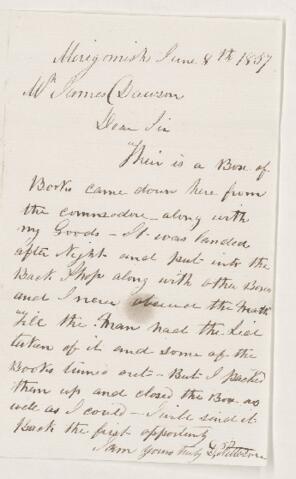 Merigomish June 8th 1857
Mr James Dawson
Dear Sir
Their is a Box of
Books came down here from
the commodore - along with
my Goods - It was landed
after Night and put into the
Back Shop along with other Boxes
and I never observed the Mark
'Till the Man had the Lid
taken of it and some of the
Books turned out - But I packed
them up and closed the Box as
well as I could - I will send it
Back the first opportunity
I am yours truly